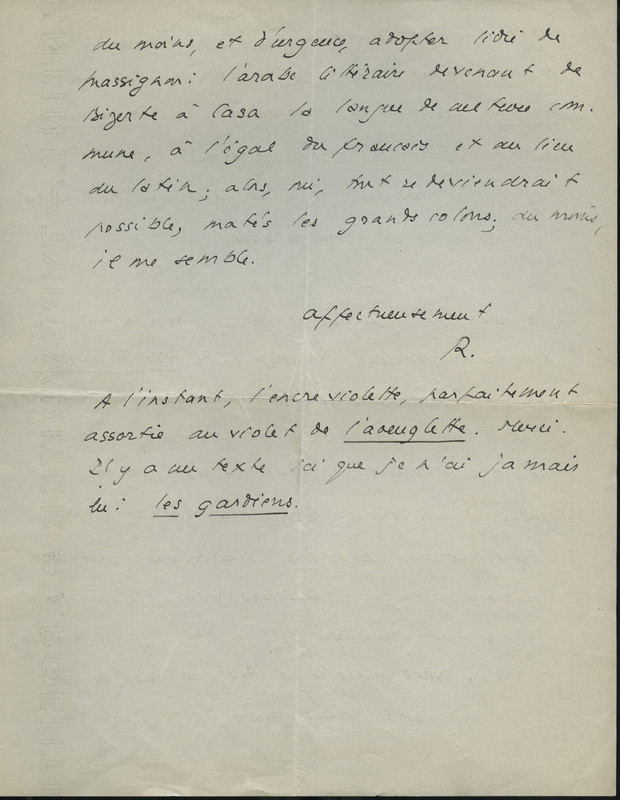 du moins, et d'urgence, adopter l'idée de
Massignon: l'arabe littéraire devenant de
Bizerte à Casa la langue de culture com-
mune, à l'égal du français et au lieu
du latin; alors, oui, tout redeviendrait
possible, matés les grands colons; du moins,
il me semble.
affectueusement
R.
A l'instant, l'encre violette, parfaitement
assortie au violet de l'aveuglette. Merci.
Il y a un texte ici que je n'ai jamais
lu: les gardiens.